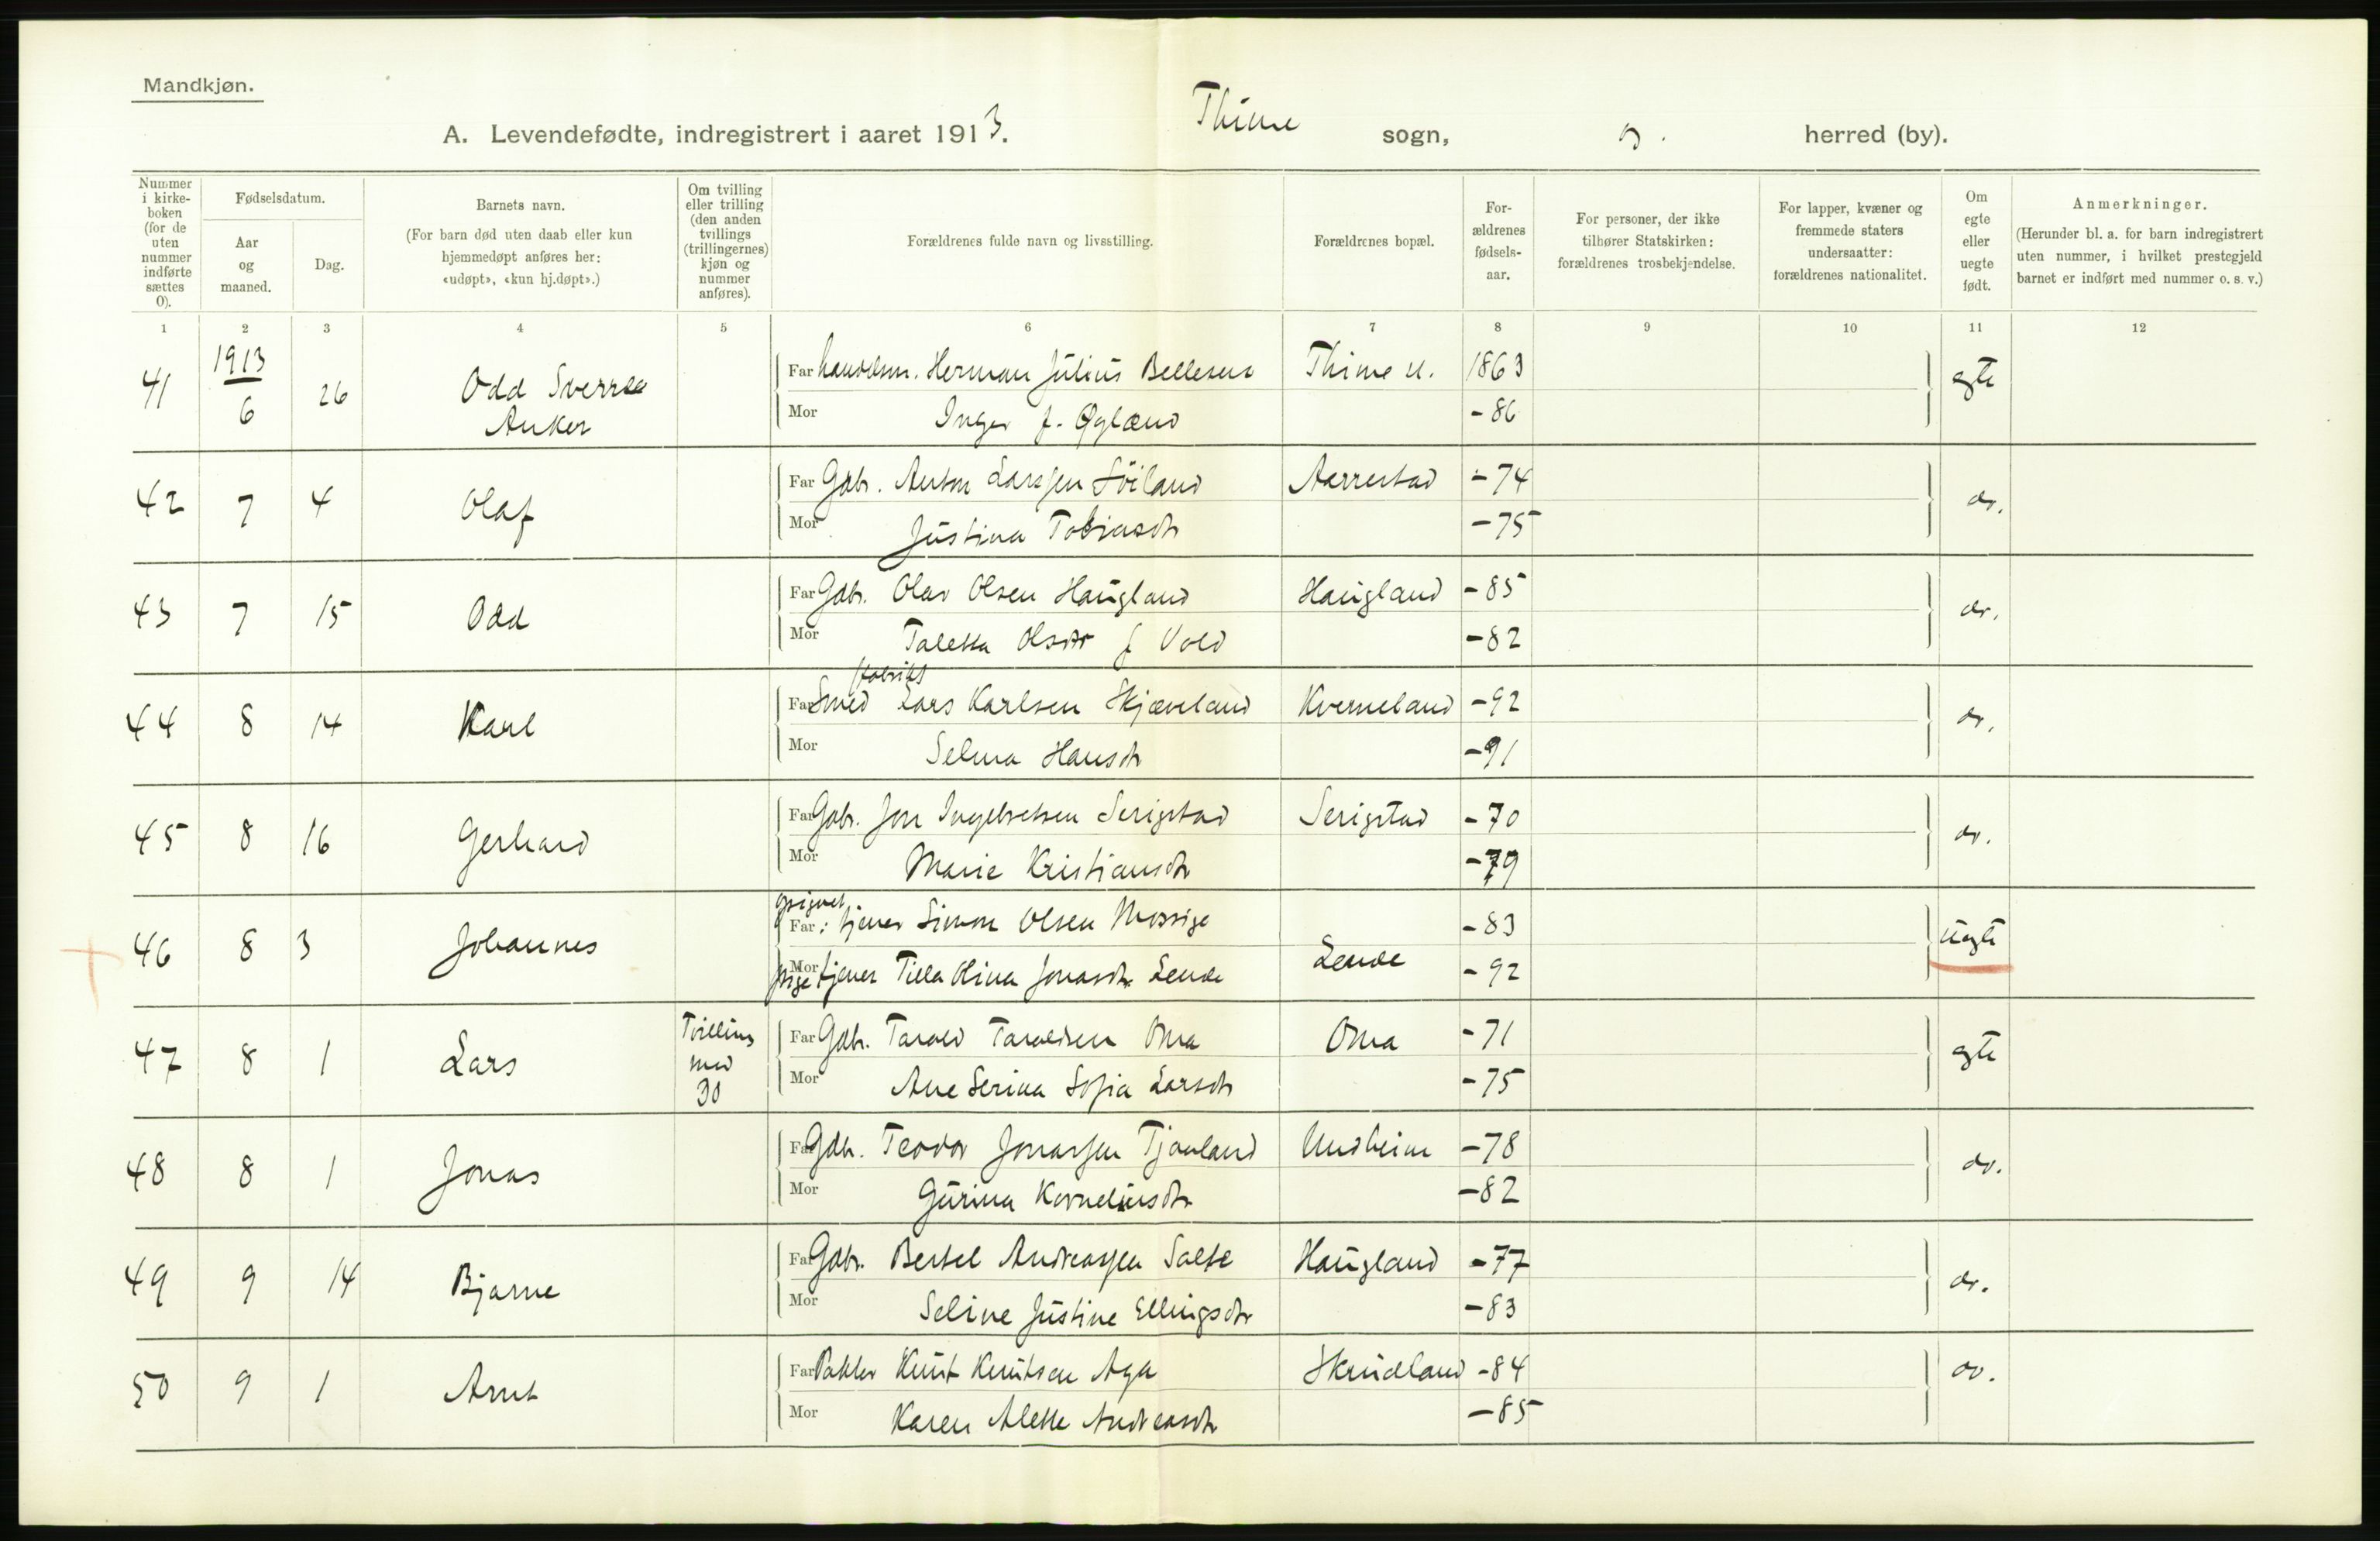 Mandkjøn.
A. Levendefødte, indregistrert i aaret 1913. Thime sogn, herred (by).
Nummer i kirke-boken (for de uten nummer indførte sættes 0).
Fødselsdatum.
Aar og maaned.
Dag.
Barnets navn.
(For barn død uten daab eller kun hjemmedøpt anføres her: «udøpt», «kun hj.døpt».)
Om tvilling eller trilling (den anden tvillings (trillingernes) kjøn og nummer anføres).
Forældrenes fulde navn og livsstilling.
Forældrenes bopæl.
For-ældrenes fødsels-aar.
For personer, der ikke tilhører Statskirken: forældrenes trosbekjendelse.
For lapper, kvæner og fremmede staters undersaatter: forældrenes nationalitet.
Om egte eller uegte født.
Anmerkninger.
(Herunder bl. a. for barn indregistrert uten nummer, i hvilket prestegjeld barnet er indført med nummer o. s. v.)
1 2 3 4 5 6 7 8 9 10 11 12
41 1913 6 26 Odd Sverre Anker Far handelsm. Herman Julius Bellesen Thime st. 1863 egte
Mor Inger f. Øgland - 86
42 7 4 Olaf Far Gdbr. Anton Larssen Söiland Aarrestad - 74 do.
Mor Justina Tobiasdtr - 75
43 7 15 Odd Far Gdbr. Olav Olsen Haugland Haugland - 85 do.
Mor Taletta Olsdtr f Vold - 82
fabrikk
44 8 14 Karl Far Smed Lars Karlsen Skjæveland Kverneland - 92 do.
Mor Selma Hansdtr - 91
45 8 16 Gerhard Far Gdbr. Jon Ingebretsen Serigstad Serigstad - 70 do.
Mor Marie Kristiansdtr - 79
46 8 3 Johannes Far: tjener Simon Olsen Mossige Lende - 83 uegte
Mor pige tjener Tilla Olina Jonasdtr. Lende - 92
47 8 1 Lars Tvilling med 30 Far Gdbr. Tarald Taraldsen Oma Oma - 71 egte
Mor Ane Serina Sofia Larsdtr - 75
48 8 1 Jonas Far Gdbr. Teodor Jonassen Tjaaland Undheim - 78 do.
Mor Gurina Korneliusdtr - 82
49 9 14 Bjarne Far Gdbr. Bertel Andreassen Salte Haugland - 77 do.
Mor Seline Justine Ellingsdtr - 83
50 9 1 Arnt Far Pakker Knut Knutsen Aga Skrudland - 84 do.
Mor Karen Alette Andreasdtr - 85